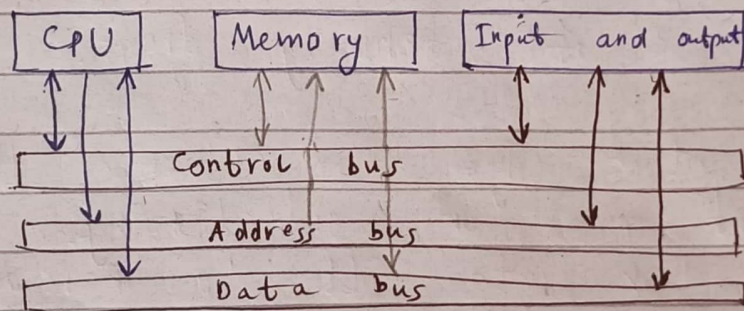 CPU
Memory
Input and output
Control bus
Address bus
Data bus